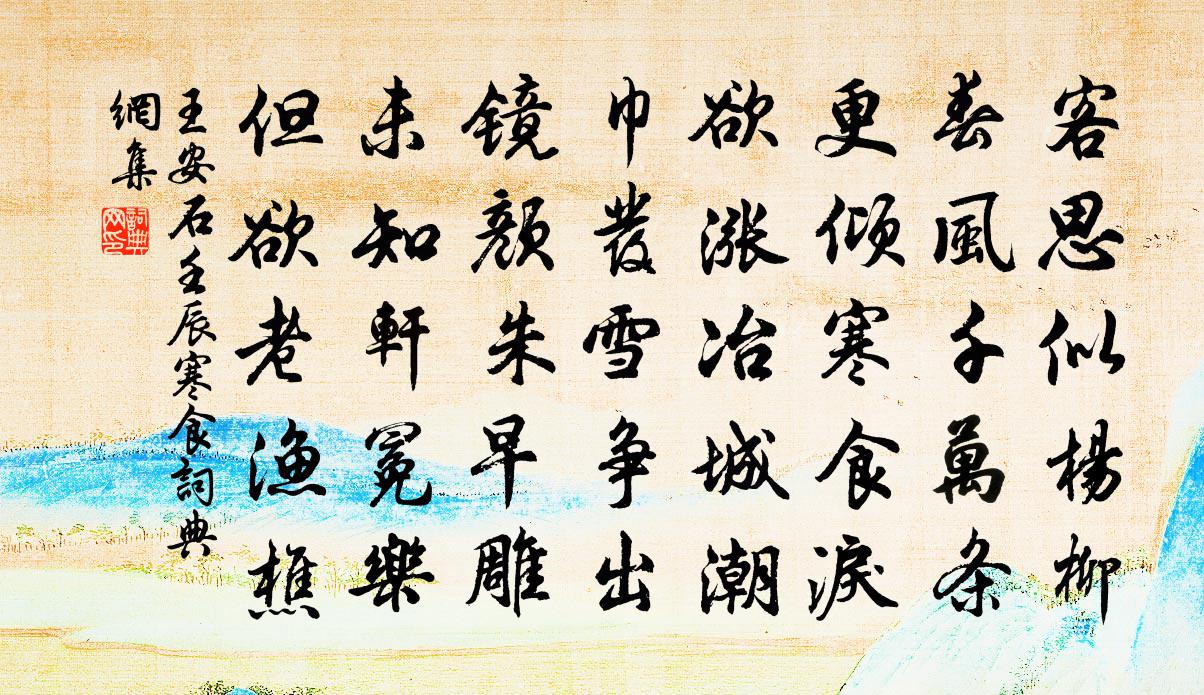 客思似楊柳
春風千萬条
更傾寒食淚
欲漲冶城潮
巾發雪争出
镜顏朱早雕
未知軒冕樂
但欲老漁樵
王安石壬辰寒食詞典
網集
詞典
网印